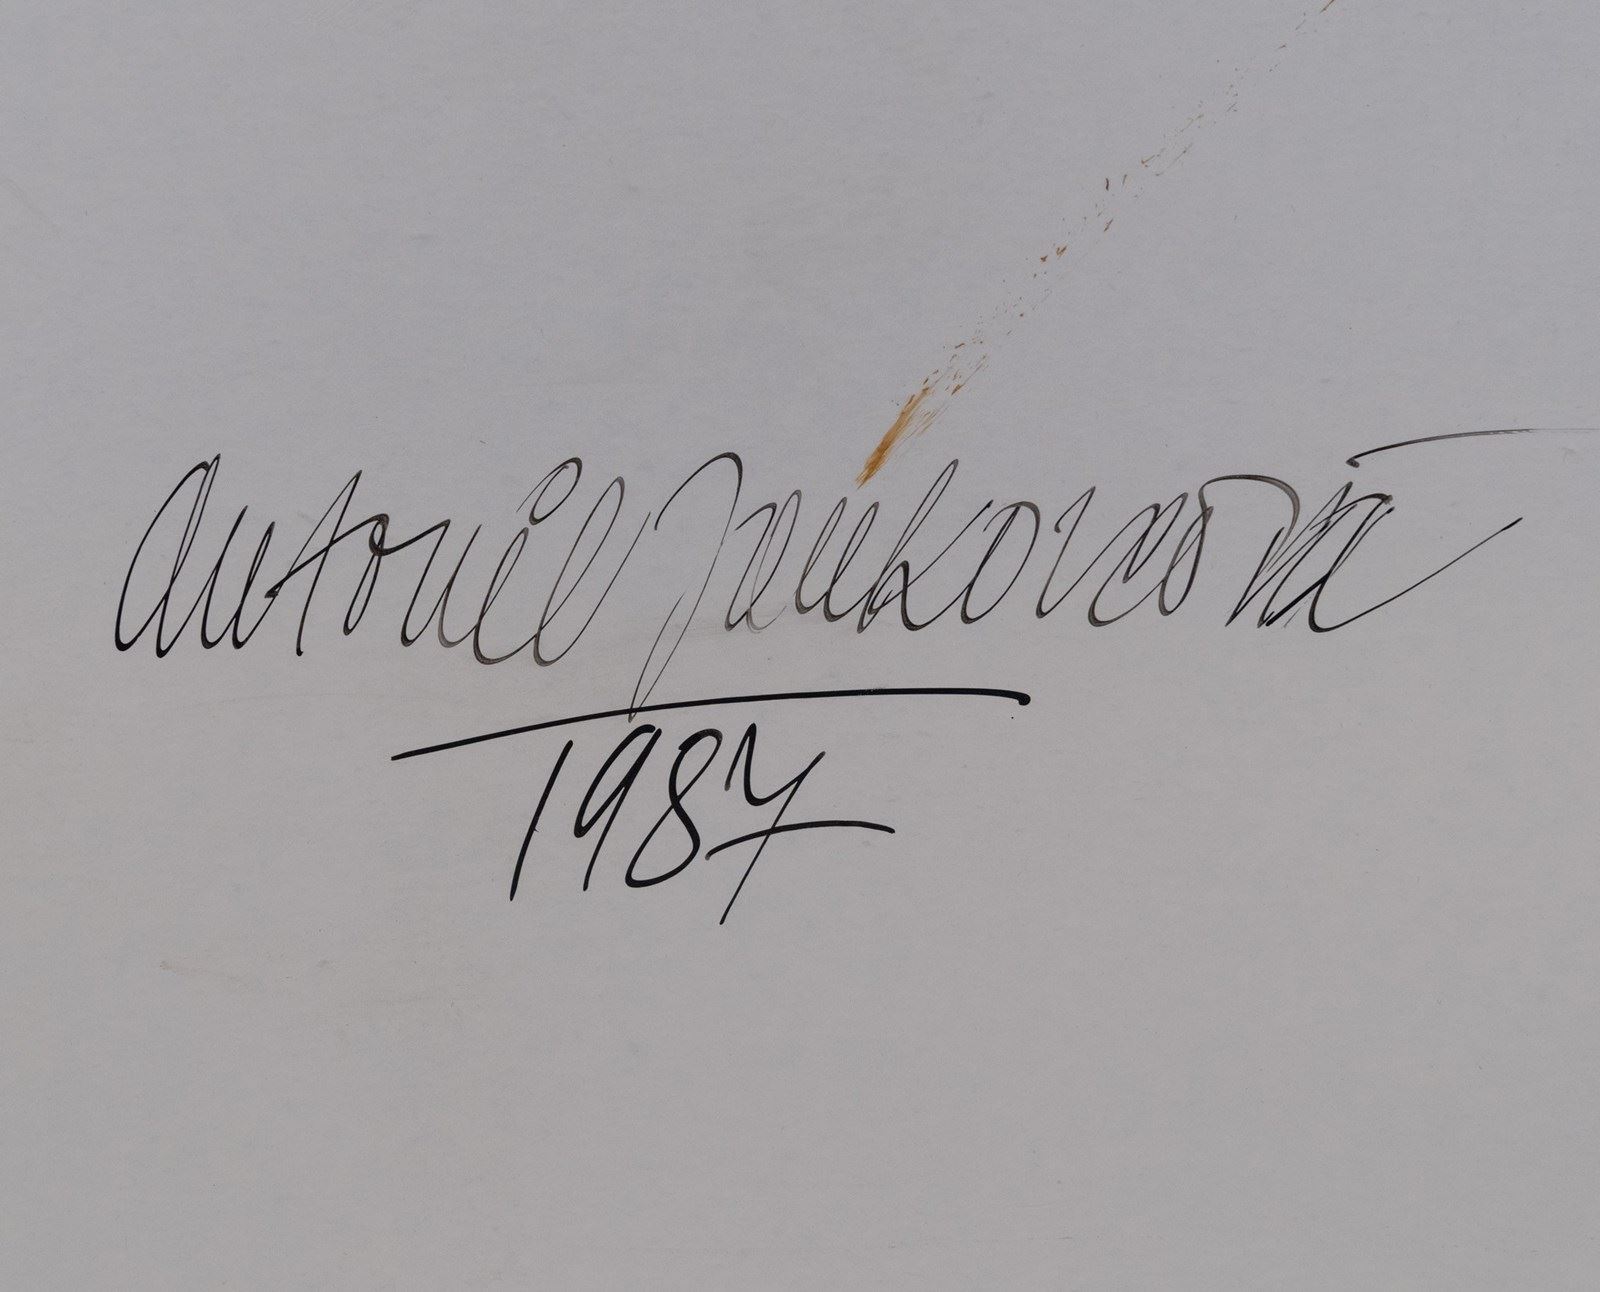 Antonie Jankovcová
1987